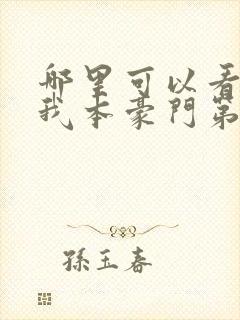 哪里可以看
我本豪門第
孫玉春